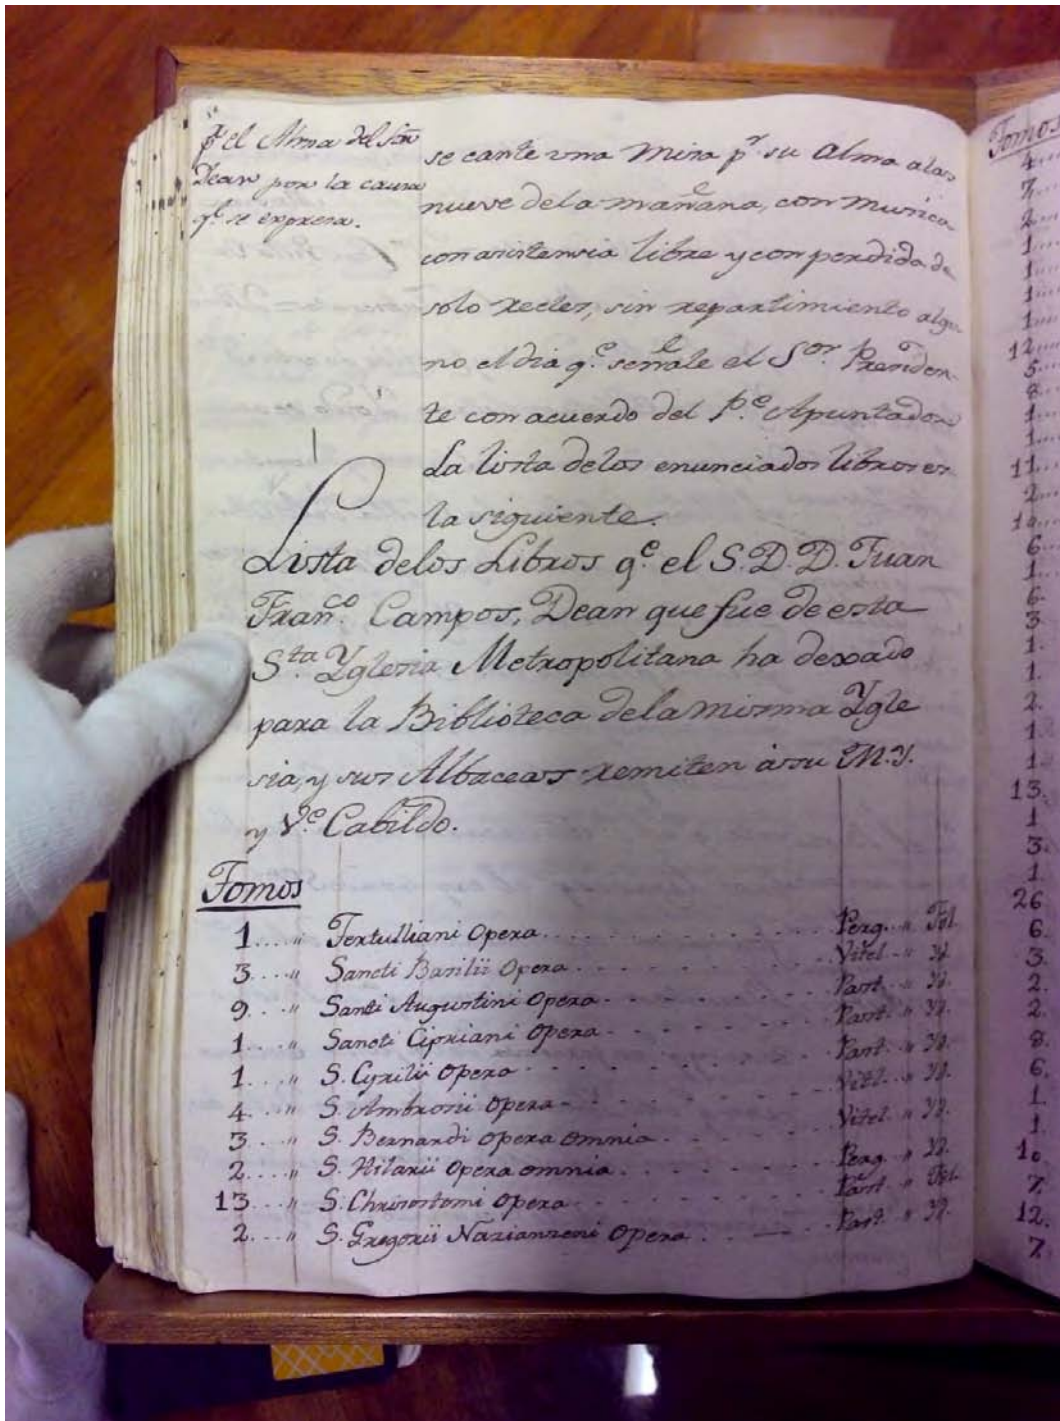 pr. el Alma del Sor.
Dean por la causa
qe. se expresa.
se cante una Misa pr. su Alma a las
nueve dela mañana, con musica
con asistencia libre y con perdida de
solo recles, sin repartimiento algu-
no el dia qe. señale el Sor. Presiden-
te con acuerdo del Pe. Apuntador
La lista delos enunciados libros es
la siguiente.
Lista delos Libros qe. el S. D. D. Juan
Franco. Campos, Dean que fue de esta
Sta. Yglesia Metropolitana ha dexado
para la Biblioteca dela misma Ygle
sia, y sus Albaceas remiten à su M. Y.
y Ve. Cabildo.
Tomos
1.... " Tertulliani Opera. . . . . . Perg. " Fol.
3.... " Sancti Basilii Opera . . . . . . Vitel. " Yd.
9.... " Santi Augustini Opera . . . . . . Past. " Yd.
1.... " Sancti Cipriani Opera . . . . . . Past. " Yd.
1.... " S. Cyrilii Opera . . . . . . Past. " Yd.
4.... " S. Ambrosii Opera . . . . . . Vitel. " Yd.
3.... " S. Bernardi Opera omnia . . . . . . Vitel. " Yd.
2.... " S. Hilarii Opera omnia . . . . . . Perg. " Yd.
13.... " S. Chrisostomi Opera . . . . . . Past. " Fol.
2.... " S. Gregorii Nazianzeni Opera . . . . . . Past. " Yd.
Tomos
4....
7....
2....
1....
1....
1....
1....
12....
5....
8....
1....
1....
11....
2....
10....
6....
1....
6.
3.
1.
1.
2.
1.
1.
13.
1
3.
1.
26
6.
3.
2.
2.
8.
6.
1.
1.
10
7.
12.
7.